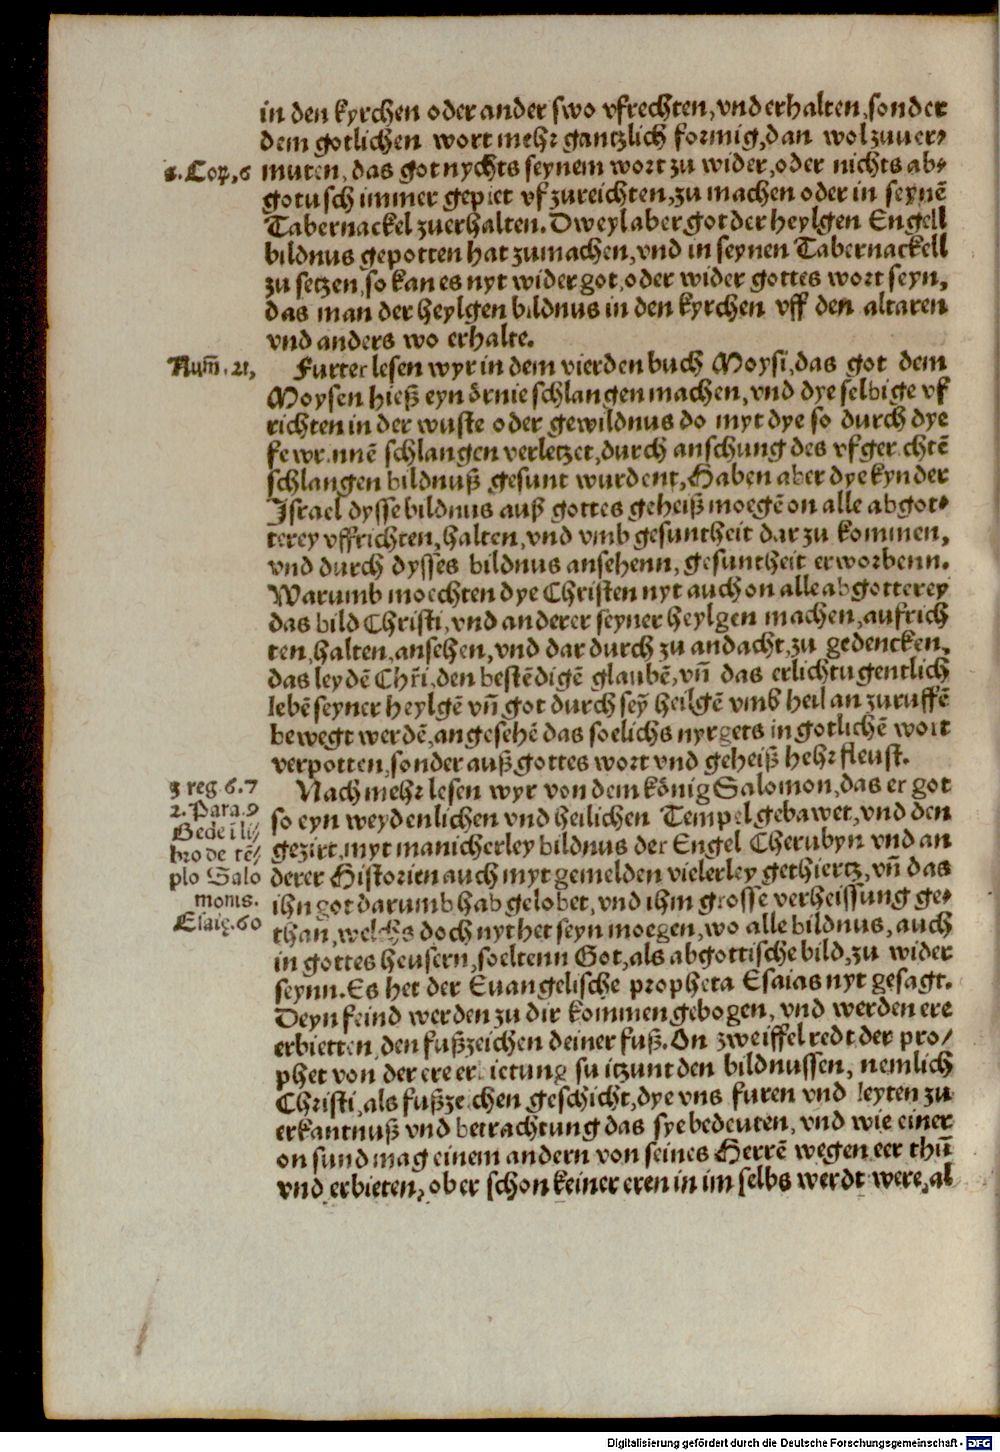 in den kyrchen oder ander swo vfrechten, vnd erhalten, sonder
dem gotlichen wort mehr gantzlich formig, dan wol zuuer⸗
. Cor, 6
muten, das got nychts seynem wort zu wider, oder nichts ab⸗
gotusch immer gepiet vf zureichten, zu machen oder in seynē
Tabernackel zuerhalten. Dweyl aber got der heylgen Engell
bildnus gepotten hat zumachen, vnd in seynen Tabernackell
zu setzen, so kan es nyt wider got, oder wider gottes wort seyn,
das man der heylgen bildnus in den kyrchen vff den altaren
vnd anders wo erhalte.
Num̄. 21,
Furter lesen wyr in dem vierden buch Moysi, das got dem
Moysen hieß eyn örnie schlangen machen, vnd dye selbige vf
richten in der wuste oder gewildnus do myt dye so durch dye
schlangen verletzet, durch anschung des vfger chtē
schlangen bildnuß gesunt wurdent, Haben aber dye kynder
Israel dysse bildnus auß gottes geheiß moegē on alle abgot⸗
terey vffrichten, halten, vnd vmb gesuntheit dar zu kommen,
vnd durch dysses bildnus ansehenn, gesuntheit erworbenn.
Warumb moechten dye Christen nyt auch on alle abgotterey
das bild Christi, vnd anderer seyner heylgen machen, aufrich
ten, halten, ansehen, vnd dar durch zu andacht, zu gedencken,
das leydē Chr̄i, den bestēdigē glaubē, vn̄ das erlichtugentlich
lebē seyner heylgē vn̄ got durch sey̅ heilgē vmb heil an zuruffē
bewegt werdē, angesehē das soelichs nyrgets in gotlichē wort
verpotten, sonder auß gottes wort vnd geheiß hehr fleust.
3 reg 6.7
2. Para. 9
Bede ī li⸗/
bro de tē⸗/
plo Salo
monis.
Esaię. 60
Nach mehr lesen wyr von dem könig Salomon, das er got
so eyn weydenlichen vnd heilichen Tempel gebawet, vnd den
gezirt, myt manicherley bildnus der Engel Cherubyn vnd an
derer Historien auch myt gemelden vielerley gethiertz, vn̄ das
ihn got darumb hab gelobet, vnd ihm grosse verheissung ge⸗
than, welchs doch nyt het seyn moegen, wo alle bildnus, auch
in gottes heusern, soeltenn Got, als abgottische bild, zu wider
seynn. Es het der Euangelische propheta Esaias nyt gesagt.
Deyn feind werden zu dir kommen gebogen, vnd werden ere
erbietten, den fußzeichen deiner fuß. On zweiffel redt der pro⸗/
phet von der ere er ietung su itzunt den bildnussen, nemlich
Christi, als fußze chen geschicht, dye vns furen vnd leyten zu
erkantnuß vnd betrachtung das sye bedeuten, vnd wie einer
on sund mag einem andern von seines Herrē wegen eer thu̅
vnd erbieten, ob er schon keiner eren in im selbs werdt were, al
Digitalisierung gefördert durch die Deutsche Forschungsgemeinschaft - DFG